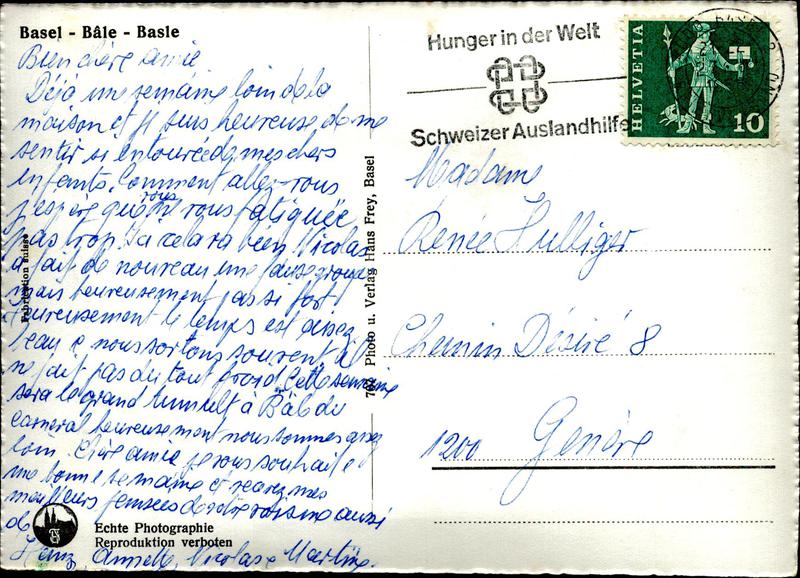 Basel - Bâle - Basle
Bien chère amie
Déjà une semaine loin de la
maison et je suis heureuse de me
sentir si entourée de mes chers
enfants. Comment allez-vous
j'espère que vous
vous fatiguée
pas trop. Ici cela va bien, Nicolas
a fait de nouveau une fausse
mais heureusement pas si fort
heureusement le temps est assez
beau e nous sortons souvent il
ne fait pas du tout froid. Cette semaine
sera le grand tumult à Bâle du
carneval heureusement nous sommes assez
loin. Chère amie je vous souhaite
une bonne semaine et recevez mes
meilleurs pensées de votre aussi
de
Heinz, Annette, Nicolas e Martine.
Fabrication suisse
Echte Photographie
Reproduktion verboten
Photo u. Verlag Hans Frey, Basel
Hunger in der Welt
Schweizer Auslandhilfe
HELVETIA
10
Madame
Renée Hulliger
Chemin Désiré 8
1200 Genève